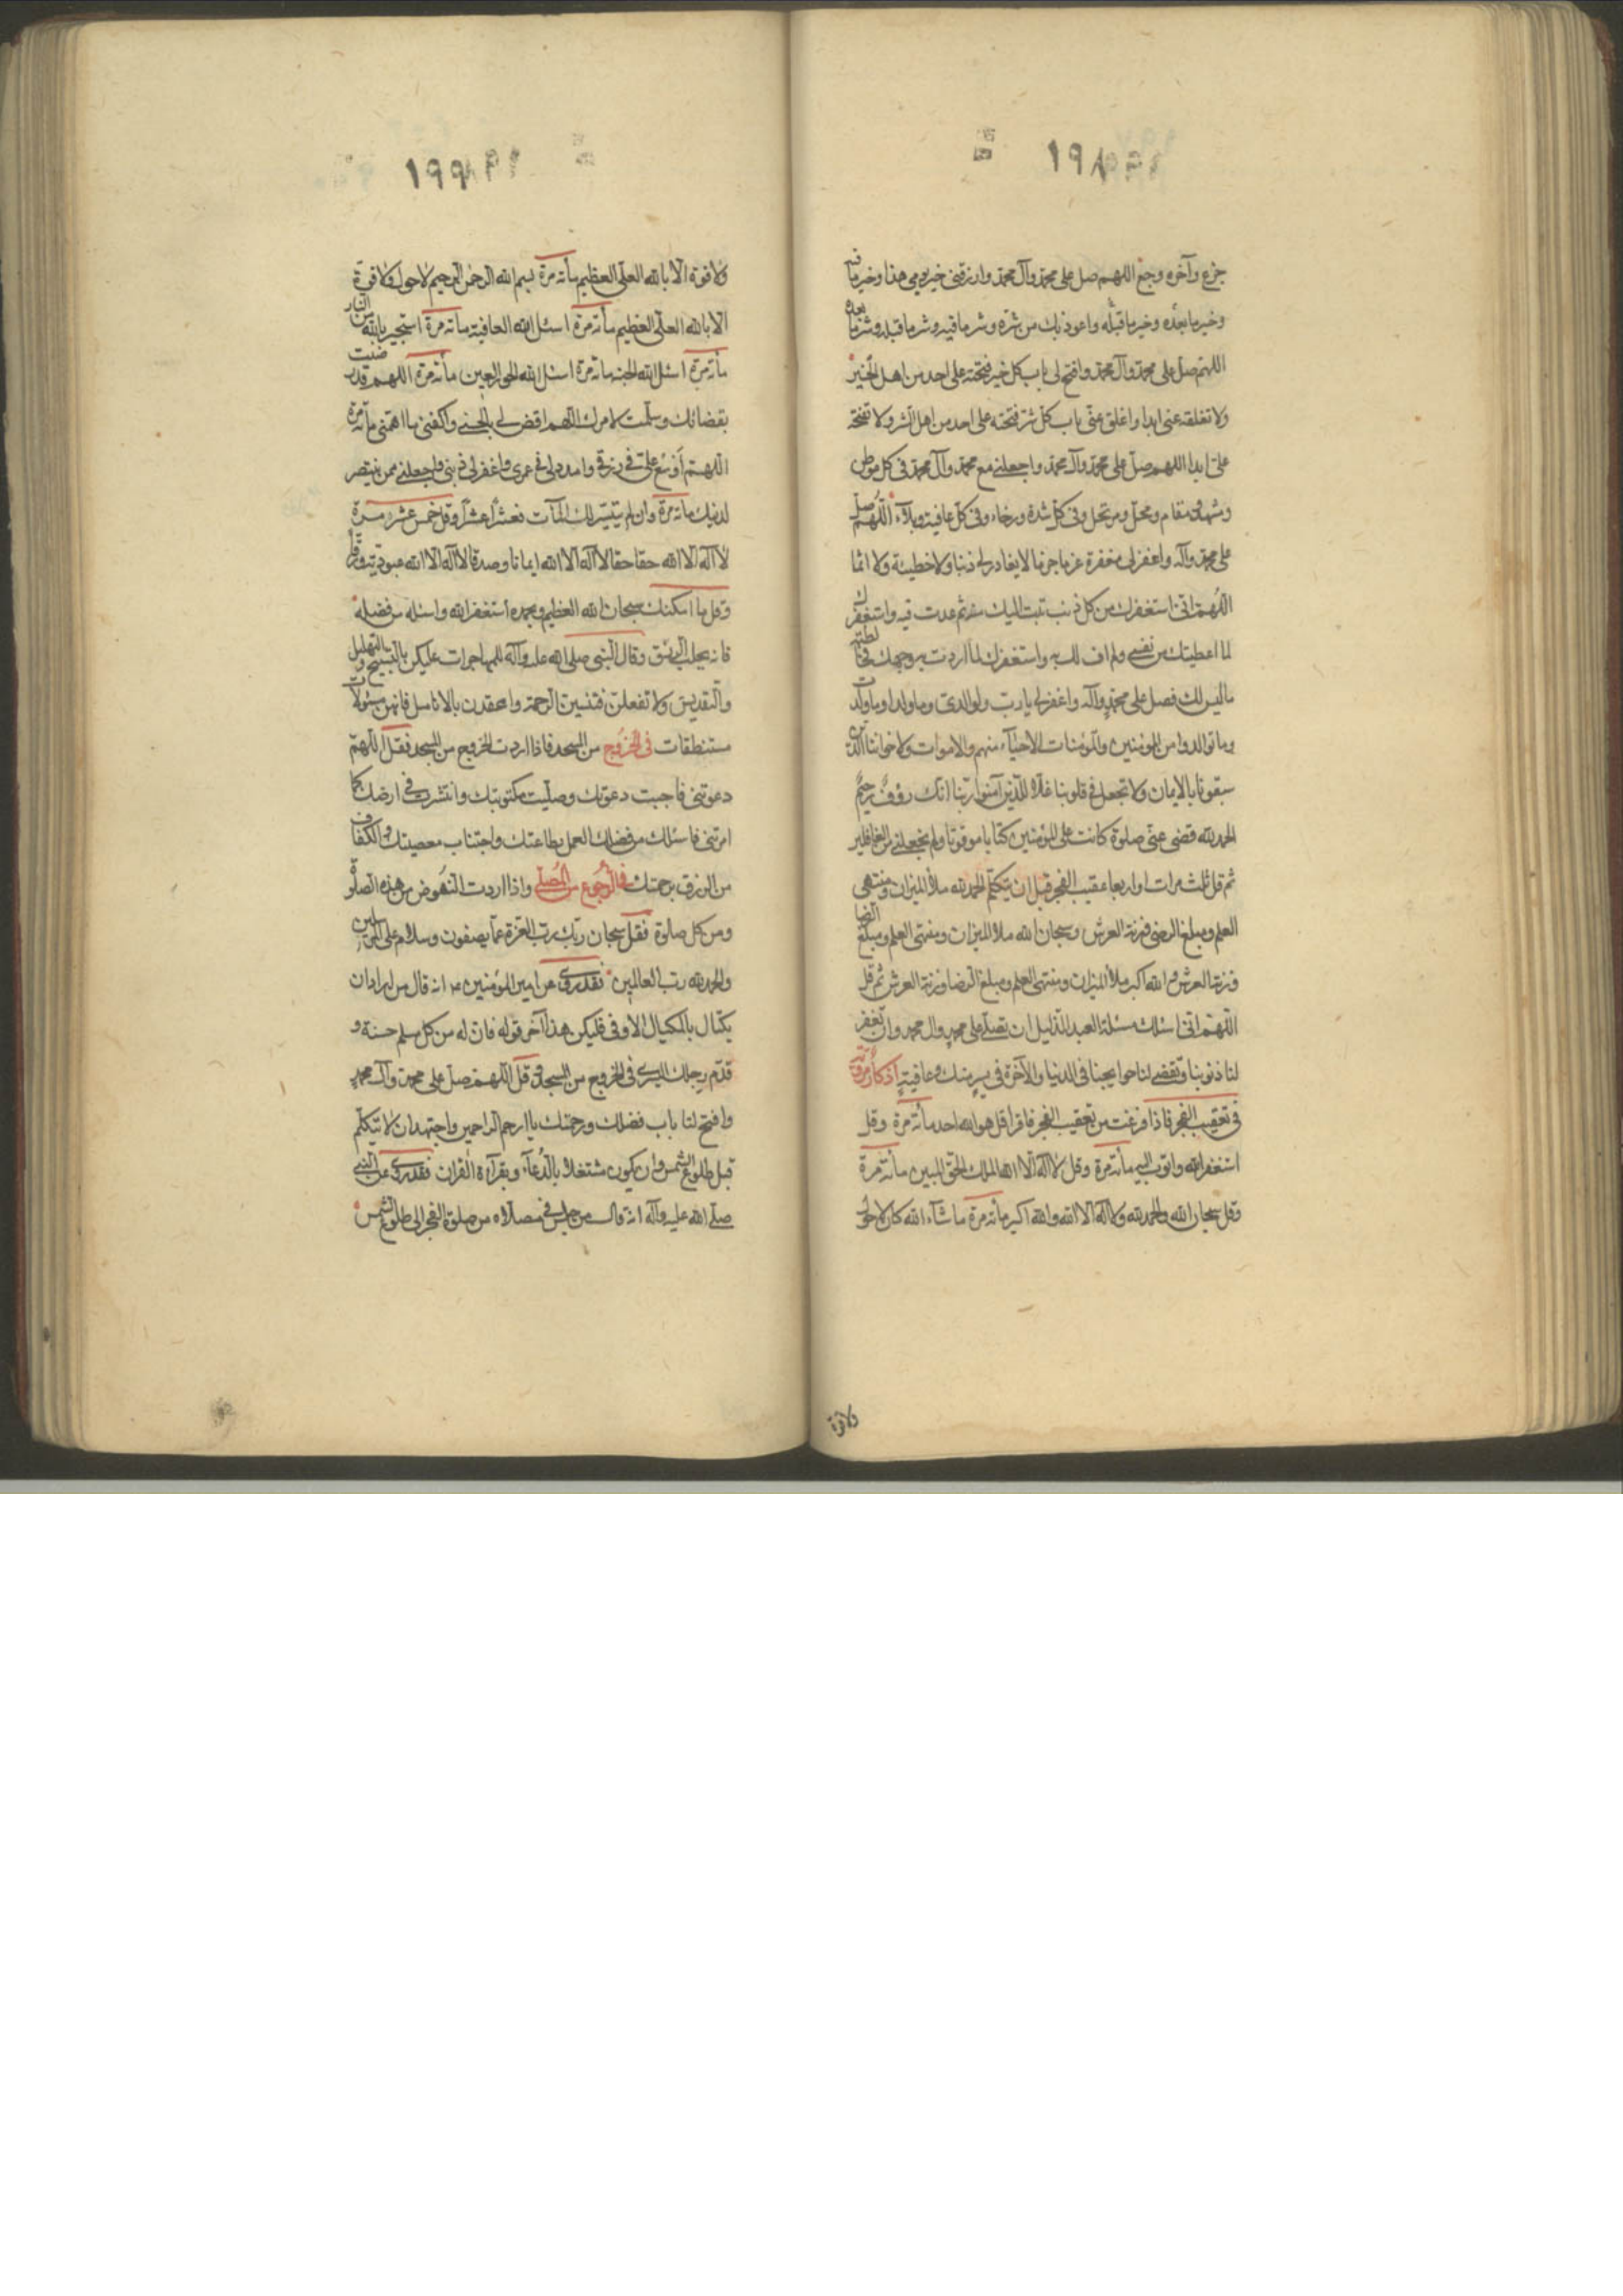 ١٩٨
جزع وآخره وجع اللهم صل على محمد وآل محمد وارزقني خير يومي هذا وخير ما فيه
وخير ما بعده وخير ما قبله واعوذ بك من شره وشر ما فيه وشر ما قبله وشر ما بعده
اللهم صل على محمد وآل محمد وافتح لي باب كل خير فتحته على احد من اهل الخير
ولا تغلقه عني ابدا واغلق عني باب كل شر فتحته على احد من اهل الشر ولا تفتحه
علي ابدا اللهم صل على محمد وآل محمد واجعلني مع محمد وآل محمد في كل موطن
ومشهد ومقام ومحل ومرتحل وفي كل شدة ورخاء وفي كل عافية وبلاء اللهم صل
على محمد وآله واغفر لي مغفرة عزما جزما لا يغادر لي ذنبا ولا خطيئة ولا اثما
اللهم اني استغفرك من كل ذنب تبت اليك منه ثم عدت فيه واستغفرك
لما اعطيتك من نفسي ولم اف لك به واستغفرك لما اردت به وجهك فخالطه
ما ليس لك فصل على محمد وآله واغفر لي يا رب ولوالدي وما ولدا وما ولدت
وما توالدوا من المؤمنين والمؤمنات الاحياء منهم والاموات ولاخواننا الذين
سبقونا بالايمان ولا تجعل في قلوبنا غلا للذين آمنوا ربنا انك رؤف رحيم
الحمد لله قضى عني صلوة كانت على المؤمنين كتابا موقوتا ولم يجعلني من الغافلين
ثم قل ثلث مرات او اربعا عقيب الفجر قبل ان تتكلم الحمد لله ملأ الميزان ومنتهى
العلم ومبلغ الرضى وزنة العرش وسبحان الله ملأ الميزان ومنتهى العلم ومبلغ الرضا
وزنة العرش والله اكبر ملأ الميزان ومنتهى العلم ومبلغ الرضا وزنة العرش ثم قل
اللهم اني اسئلك مسئلة العبد الذليل ان تصلي على محمد وال محمد وان تغفر
لنا ذنوبنا وتقضي لنا حوايجنا في الدنيا والآخرة في يسر منك وعافية اذكار مروية
في تعقيب الفجر فاذا فرغت من تعقيب الفجر فاقرا قل هو الله احد مأته مرة وقل
استغفر الله واتوب اليه مأته مرة وقل لا اله الا الله الملك الحق المبين مأته مرة
وقل سبحان الله والحمد لله ولا اله الا الله والله اكبر مأته مرة ما شاء الله كان لا حول
ولا قوة
١٩٩
ولا قوة الا بالله العلي العظيم مأته مرة بسم الله الرحمن الرحيم لا حول ولا قوة
الا بالله العلي العظيم مأته مرة اسئل الله العافية مأته مرة استجير بالله من النار
مأته مرة اسئل الله الجنة مأته مرة اسئل الله الحور العين مأته مرة اللهم قد رضيت
بقضائك وسلمت لامرك اللهم اقض لي بالحسنى واكفني ما اهمني مأته مرة
اللهم اوسع علي في رزقي وامدد لي في عمري واغفر لي ذنبي واجعلني ممن ينتصر
لدينك مأته مرة وان لم يتيسر لك المآت فعشرا عشرا وقل خمس عشر مرة
لا اله الا الله حقا حقا لا اله الا الله ايمانا وصدقا لا اله الا الله عبودية ورقا
وقل ما امكنك سبحان الله العظيم وبحمده استغفر الله واسئله من فضله
فانه يجلب الرزق وقال النبي صلى الله عليه وآله للمهاجرات عليكن بالتسبيح والتهليل
والتقديس ولا تغفلن فتنسين الرحمة واعقدن بالانامل فانهن مسئولات
مستنطقات في الخروج من المسجد فاذا اردت الخروج من المسجد فقل اللهم
دعوتني فاجبت دعوتك وصليت مكتوبتك وانتشرت في ارضك كما
امرتني فاسئلك من فضلك العمل بطاعتك واجتناب معصيتك والكفاف
من الرزق برحمتك في الرجوع من المصلى واذا اردت النهوض من هذه الصلوة
ومن كل صلوة فقل سبحان ربك رب العزة عما يصفون وسلام على المرسلين
والحمد لله رب العالمين فقد روي عن امير المؤمنين ع انه قال من اراد ان
يكتال بالمكيال الاوفى فليكن هذا آخر قوله فان له من كل مسلم حسنة و
قدم رجلك اليسرى في الخروج من المسجد وقل اللهم صل على محمد وآل محمد
وافتح لنا باب فضلك ورحمتك يا ارحم الراحمين واجتهد ان لا تتكلم
قبل طلوع الشمس وان يكون مشتغلا بالدعاء وبقرآءة القران فقد روي عن النبي
صلى الله عليه وآله انه قال من جلس في مصلاه من صلوة الفجر الى طلوع الشمس